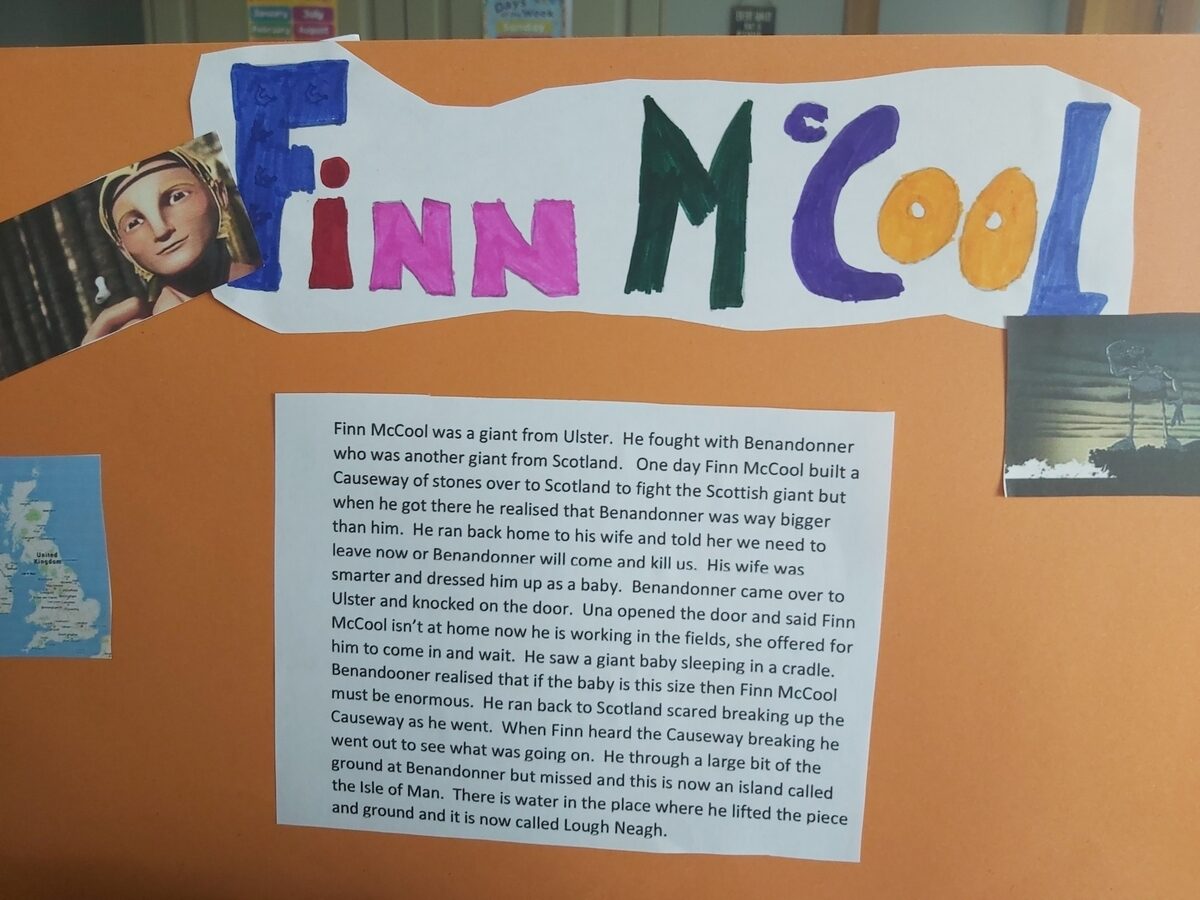 January July
February August
Days
of the Week
Sunday
Finn McCool
Finn McCool was a giant from Ulster. He fought with Benandonner
who was another giant from Scotland. One day Finn McCool built a
Causeway of stones over to Scotland to fight the Scottish giant but
when he got there he realised that Benandonner was way bigger
than him. He ran back home to his wife and told her we need to
leave now or Benandonner will come and kill us. His wife was
smarter and dressed him up as a baby. Benandonner came over to
Ulster and knocked on the door. Una opened the door and said Finn
McCool isn't at home now he is working in the fields, she offered for
him to come in and wait. He saw a giant baby sleeping in a cradle.
Benandooner realised that if the baby is this size then Finn McCool
must be enormous. He ran back to Scotland scared breaking up the
Causeway as he went. When Finn heard the Causeway breaking he
went out to see what was going on. He through a large bit of the
ground at Benandonner but missed and this is now an island called
the Isle of Man. There is water in the place where he lifted the piece
and ground and it is now called Lough Neagh.
United
Kingdom